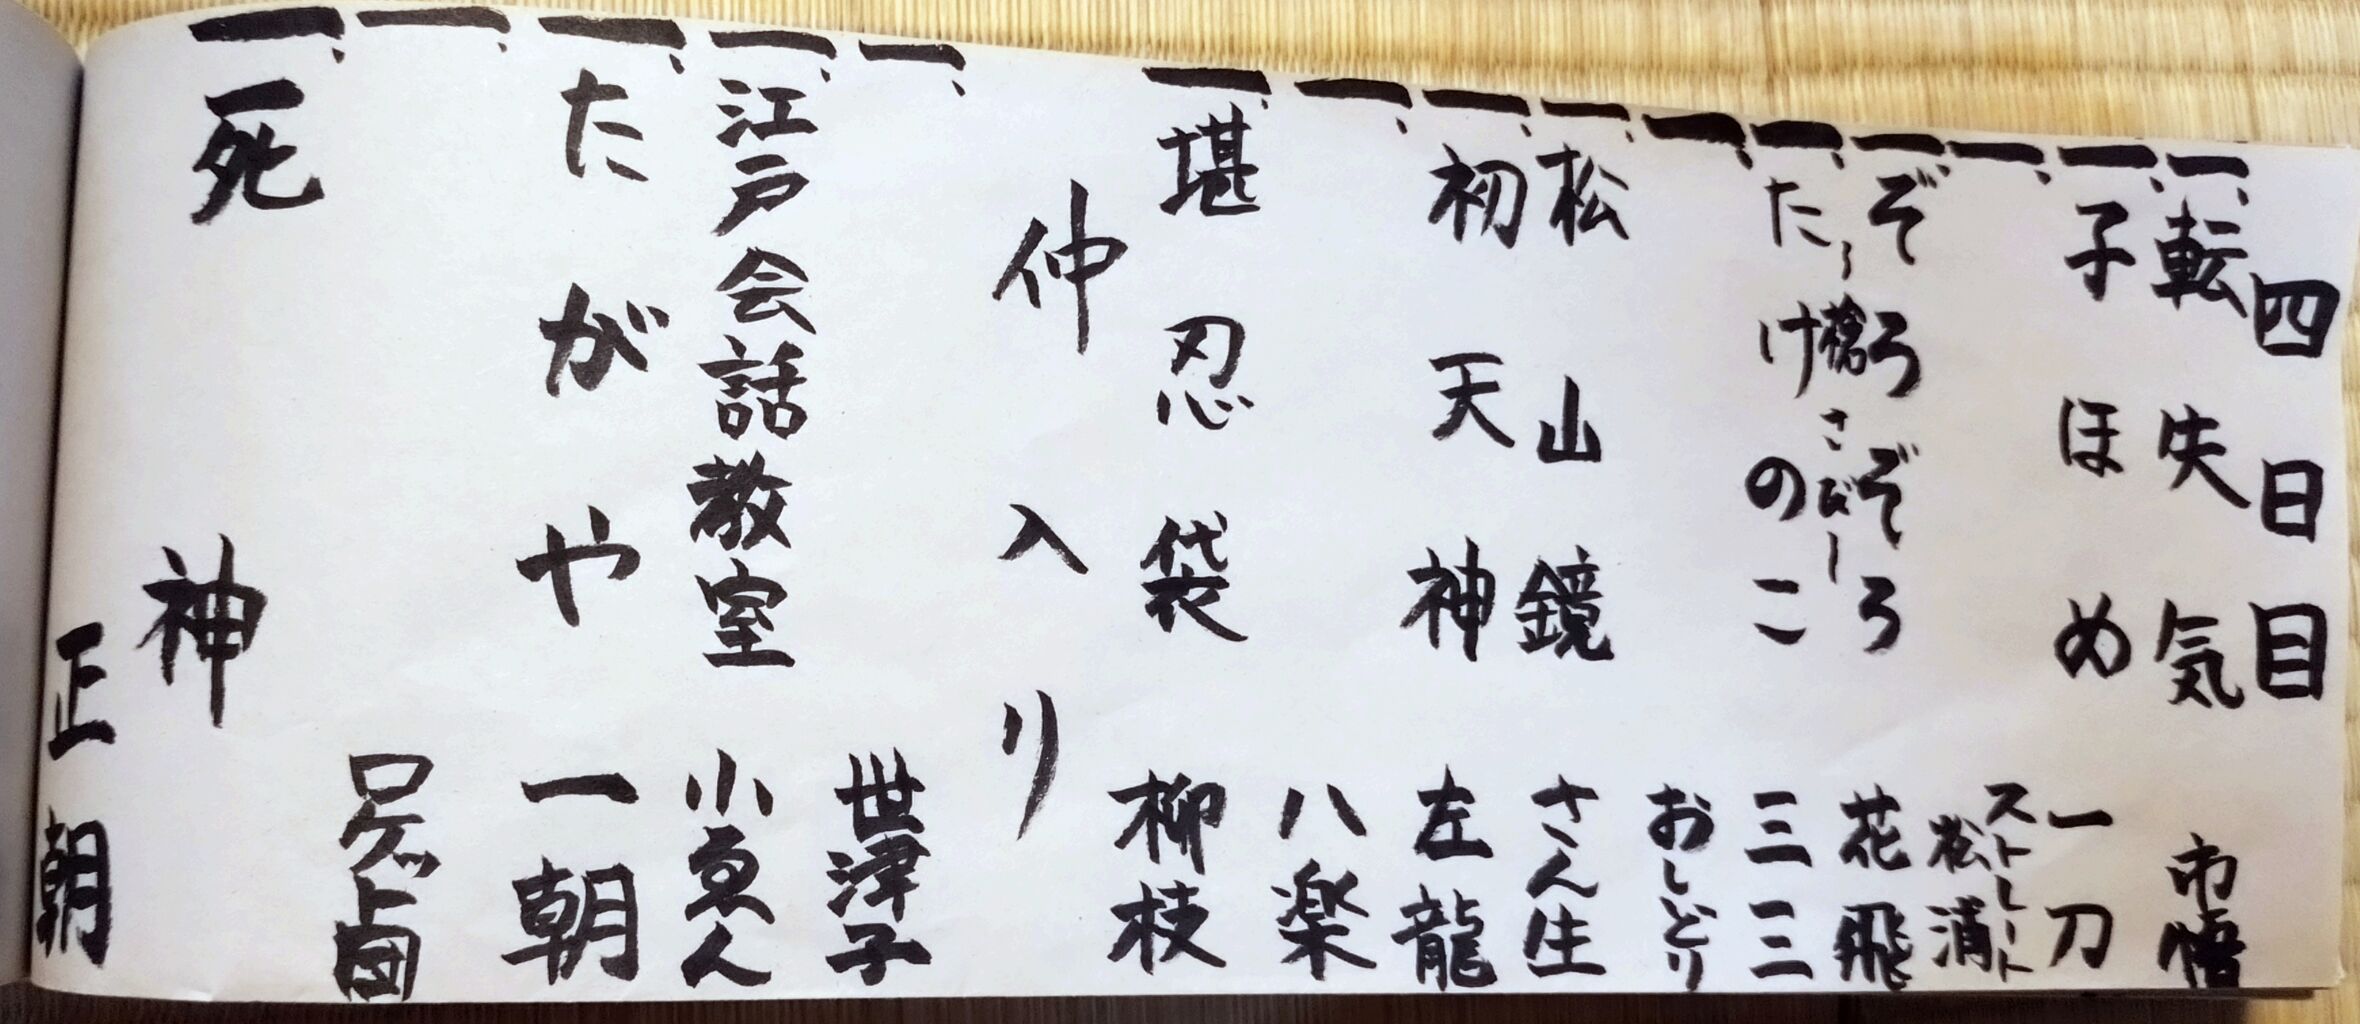 四日目
一、転失気 市悟
一、子ほめ 一刀
一、ストレート松浦
一、ぞろぞろ 花飛
槍さびー
一、たけのこ 三三
一、おしどり
一、松山鏡 さん生
一、初天神 左龍
一、八楽
一、堪忍袋 柳枝
仲入り
一、世津子
一、江戸会話教室 小ゑん
一、たがや 一朝
一、ロケット団
一、死神 正朝